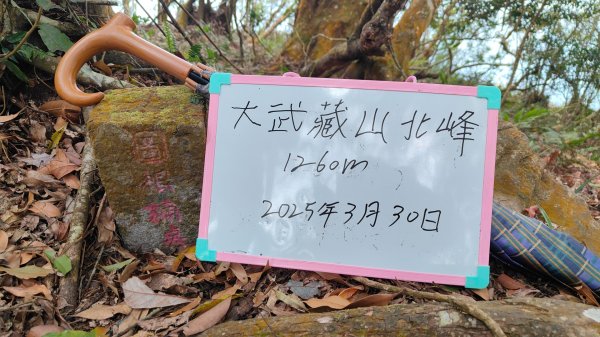 大武藏山北峰
1260m
2025年3月30日
圖根補